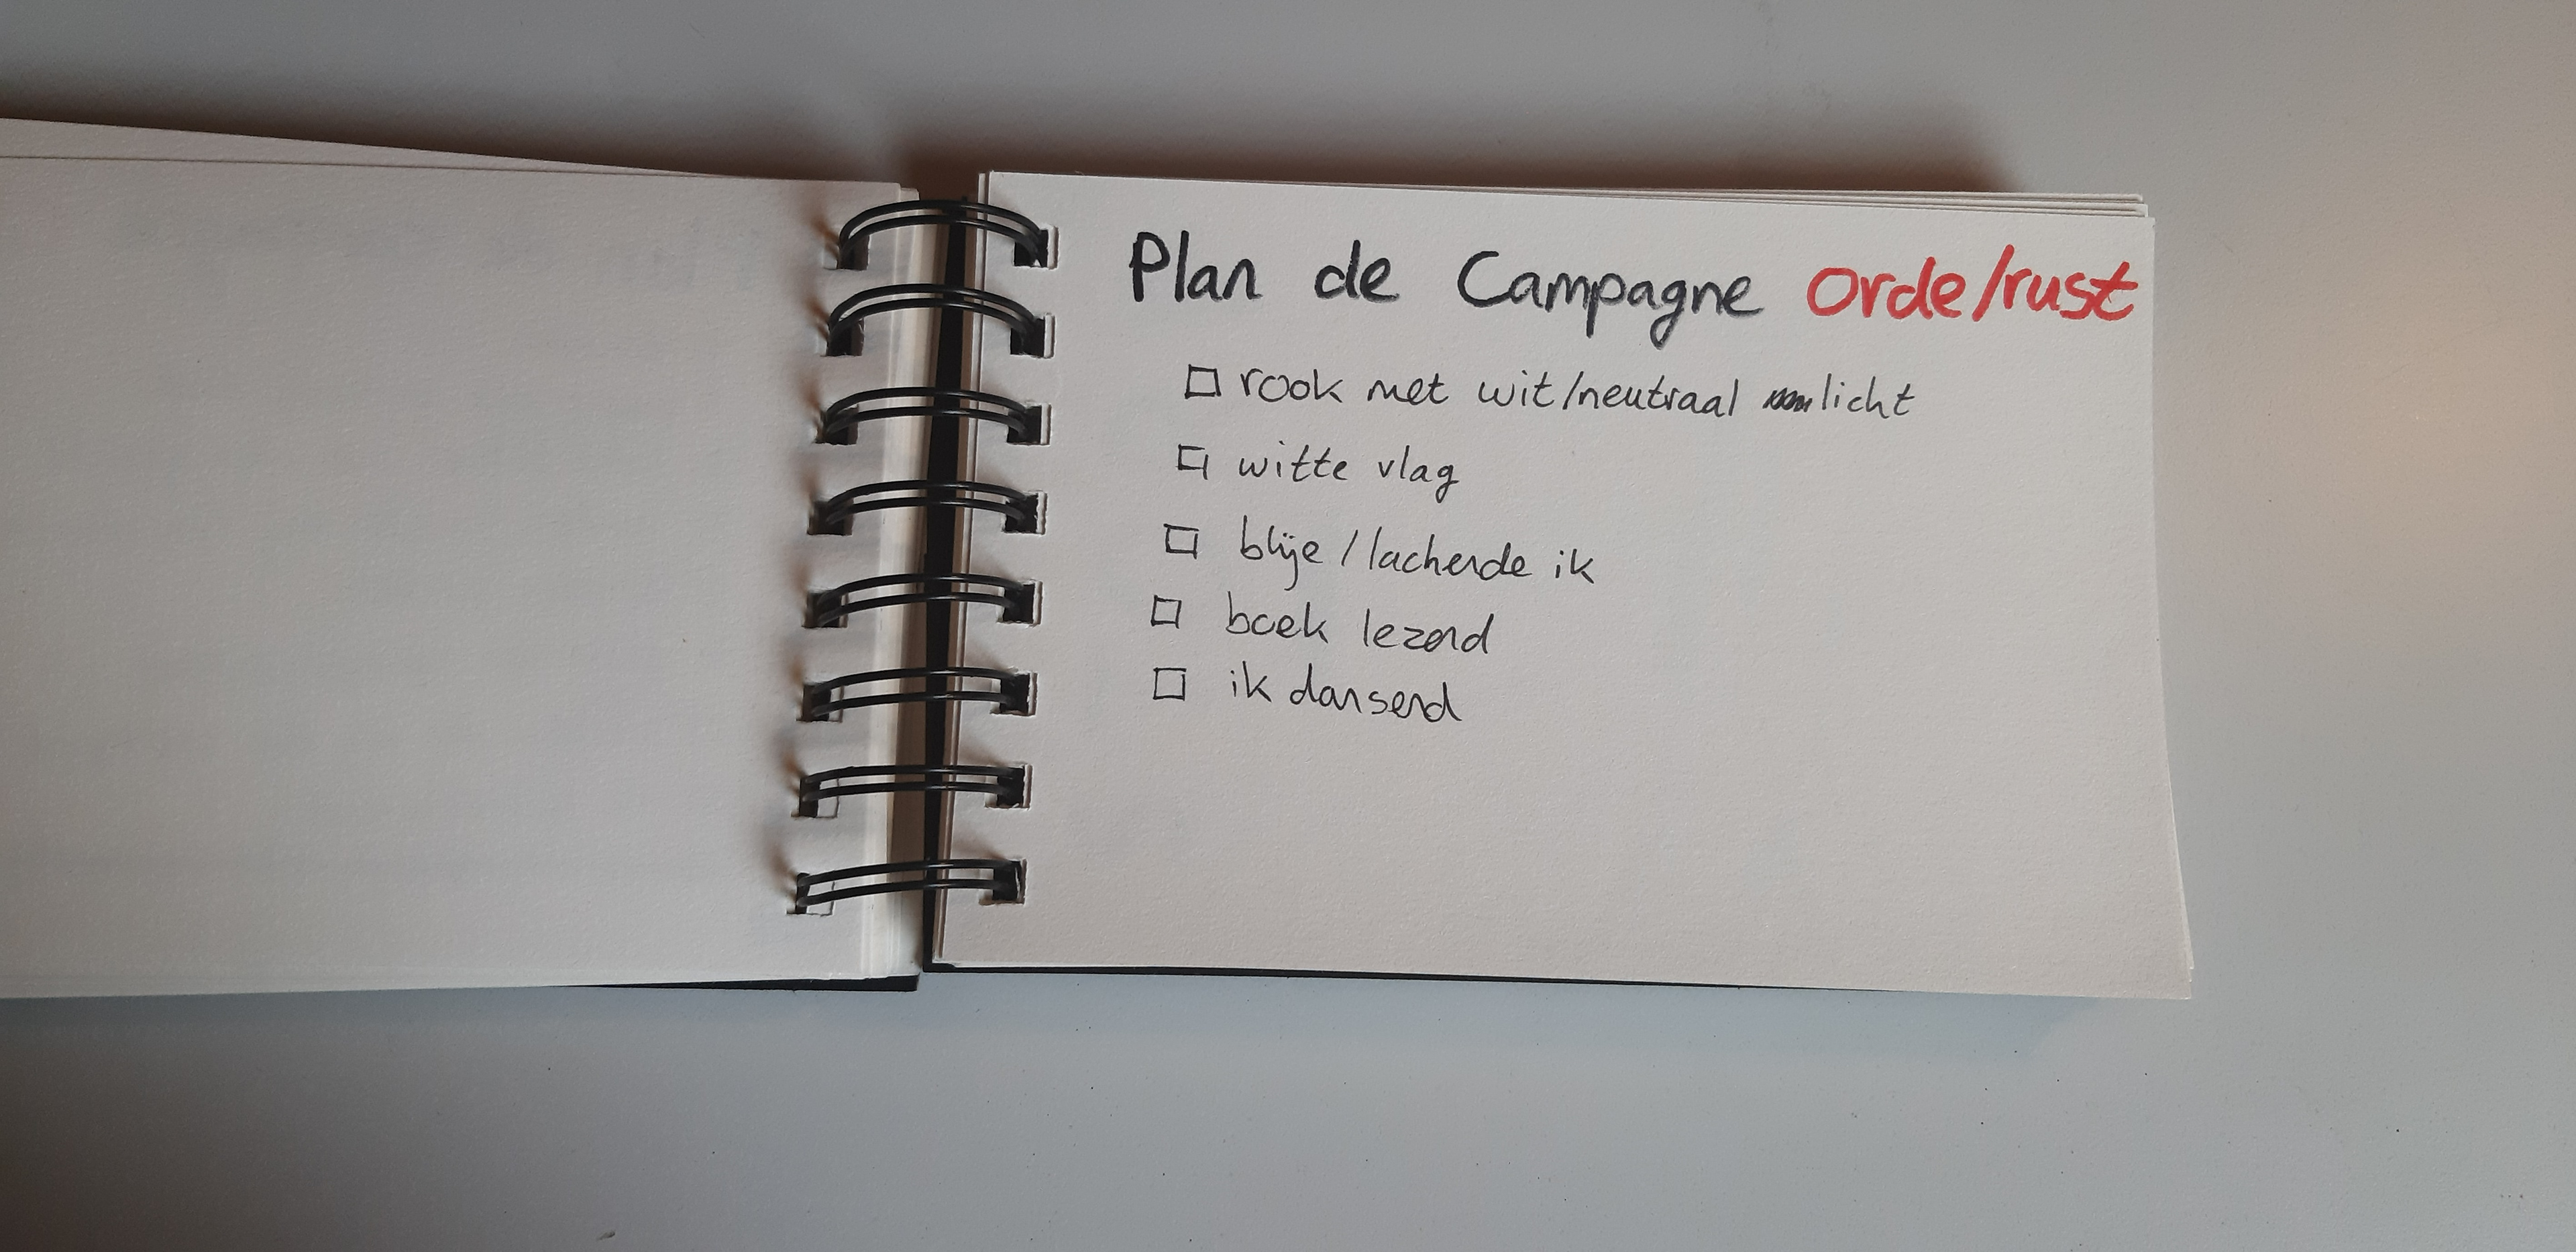 Plan de Campagne Orde/rust
rook met wit/neutraal licht
witte vlag
blije / lachende ik
boek lezend
ik dansend